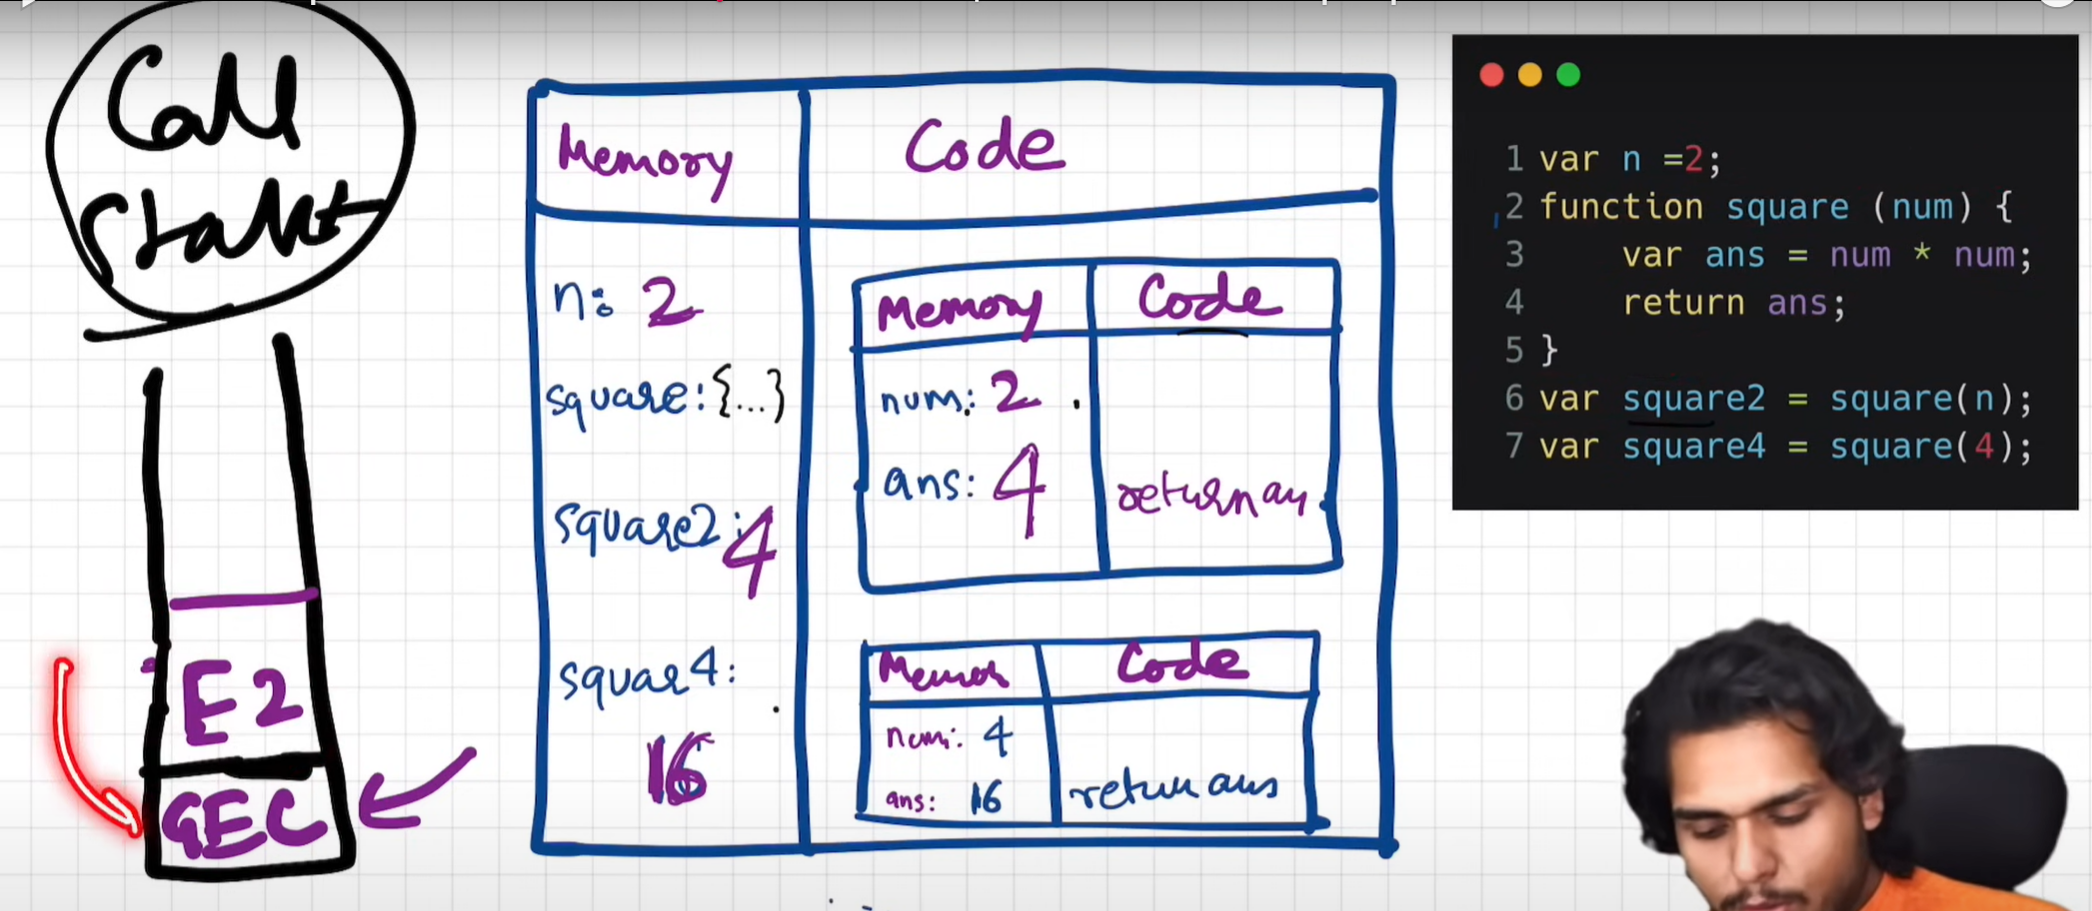 Call
Stack
E2
GEC
Memory Code
n: 2
square:{...}
square2: 4
squar4:
16
Memory Code
num: 2
ans: 4
return an
Code
num: 4
ans: 16
return ans
1 var n =2;
2 function square (num) {
3 var ans = num * num;
4 return ans;
5 }
6 var square2 = square(n);
7 var square4 = square(4);